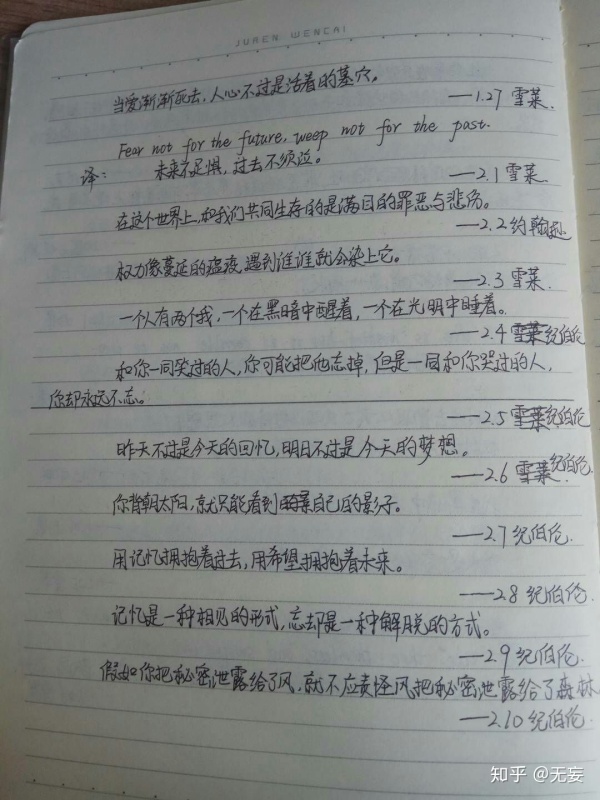 JUREN WENCAI
当爱渐渐死去，人心不过是活着的墓穴。
—1.27 雪莱.
Fear not for the future, weep not for the past.
译：未来不足惧，过去不须泣。
—2.1 雪莱.
在这个世界上，和我们共同生存的是满目的罪恶与悲伤。
—2.2 约翰逊
权力像蔓延的瘟疫，遇到谁谁就会染上它。
—2.3 雪莱.
一个人有两个我，一个在黑暗中醒着，一个在光明中睡着。
—2.4 雪莱纪伯伦
和你一同笑过的人，你可能把他忘掉，但是一同和你哭过的人，
你却永远不忘。
—2.5 雪莱纪伯伦
昨天不过是今天的回忆，明日不过是今天的梦想。
—2.6 雪莱纪伯伦.
你背朝太阳，就只能看到自己的影子。
—2.7 纪伯伦.
用记忆拥抱着过去，用希望拥抱着未来。
—2.8 纪伯伦.
记忆是一种相见的形式，忘却是一种解脱的方式。
—2.9 纪伯伦.
假如你把秘密泄露给了风，就不应责怪风把秘密泄露给了森林
—2.10 纪伯伦.
知乎 @无妄